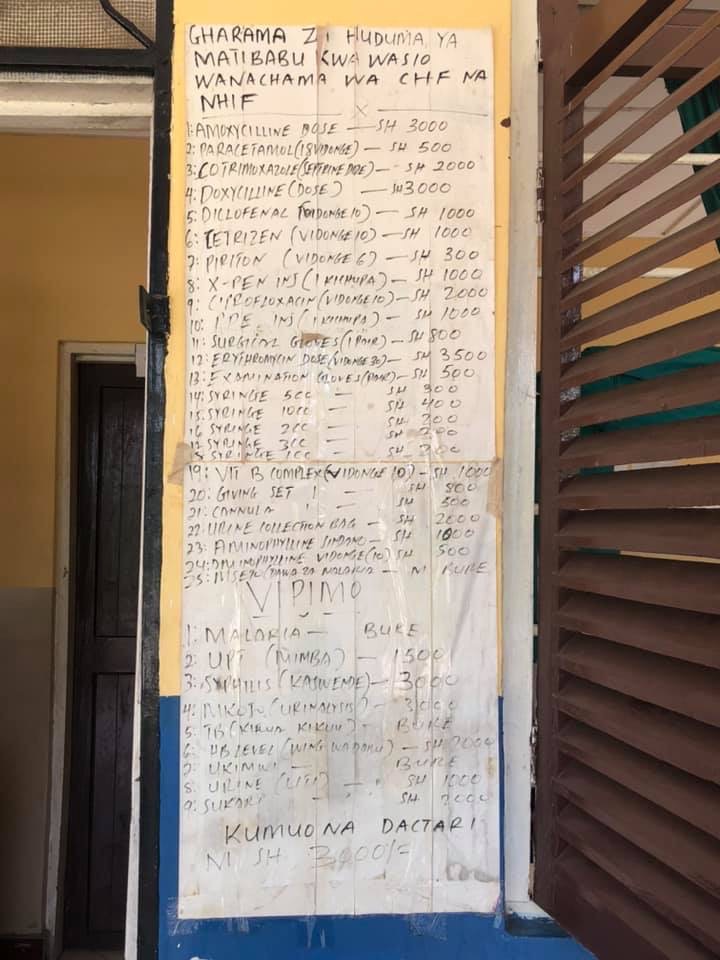 GHARAMA ZA HUDUMA YA
MATIBABU KWA WASIO
WANACHAMA WA CHF NA
NHIF
X
1: AMOXYCILLINE DOSE — SH 3000
2: PARACETAMOL (18 VIDONGE) — SH 500
3: COTRIMOXAZOLE (SEPTRINE DOSE) — SH 2000
4: DOXYCILLINE (DOSE) — SH 3000
5: DICLOFENAL (VIDONGE 10) — SH 1000
6: CETRIZEN (VIDONGE 10) — SH 1000
7: PIRITON (VIDONGE 6) — SH 300
8: X-PEN INJ (1 KICHUPA) — SH 1000
9: CIPROFLOXACIN (VIDONGE 10) — SH 2000
10: PPF INJ (1 KICHUPA) — SH 1000
11: SURGICAL GLOVES (1 PAIR) — SH 800
12: ERYTHROMYCIN DOSE (VIDONGE 30) — SH 3500
13: EXAMINATION GLOVES (PAIR) — SH 500
14: SYRINGE 5CC " SH 300
15: SYRINGE 10CC — SH 400
16 SYRINGE 2CC — SH 200
17 SYRINGE 3CC — SH 200
18 SYRINGE 1CC — SH 200
19: VIT B COMPLEX (VIDONGE 10) — SH 1000
20: GIVING SET 1 — SH 800
21: CANNULA 1 — SH 500
22: URINE COLLECTION BAG — SH 2000
23: AMINOPHYLLINE SINDANO — SH 1000
24: AMINOPHYLLINE VIDONGE (10) SH 500
25: MSETO (DAWA ZA MALARIA — NI BURE
VIPIMO
1: MALARIA — BURE
2: UPT (MIMBA) — 1500
3: SYPHILIS (KASWENDE) — 3000
4: MKOJO (URINALYSIS) — 3000
5: TB (KIFUA KIKUU) — BURE
6: HB LEVEL (WINGI WA DAMU) — SH 2000
7: UKIMWI — BURE
8: URINE (UTI) — SH 1000
9: SUKARI — SH 2000
KUMUONA DACTARI
NI SH 3000/=